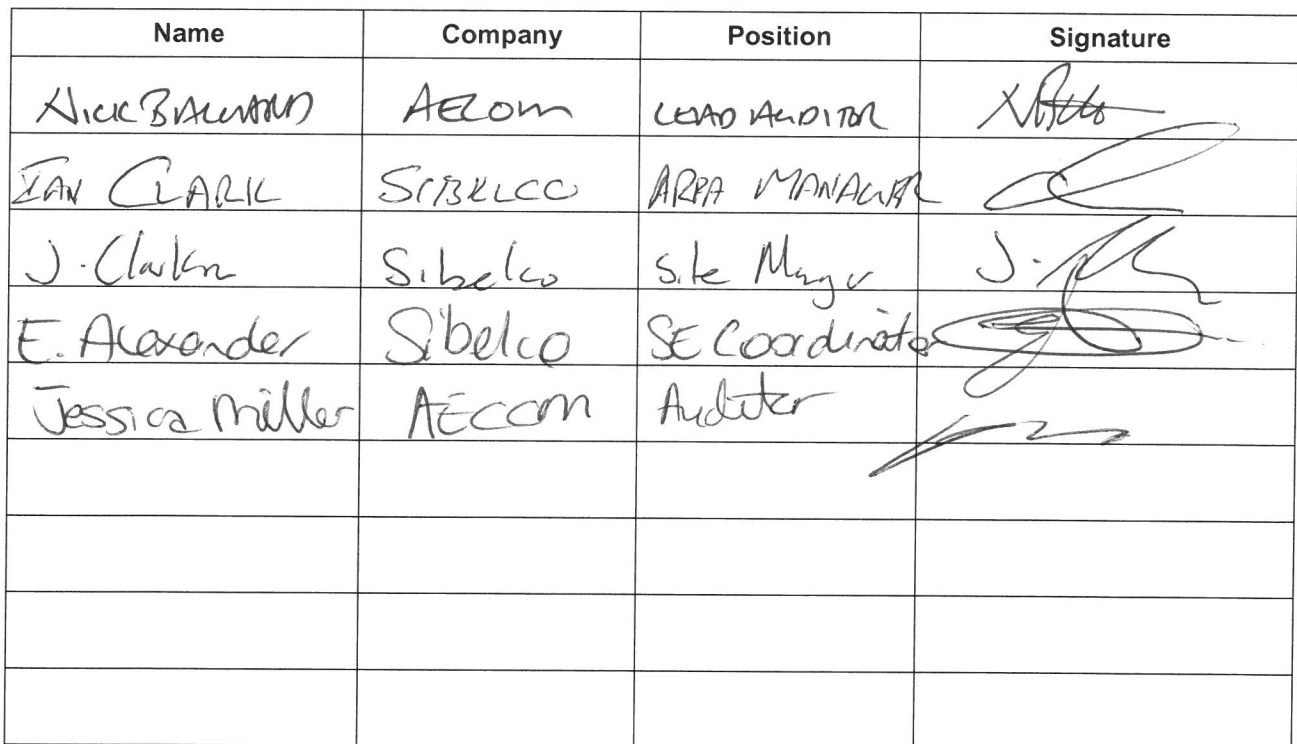 Name Company Position Signature
Nick Ballard AECOM LEAD AUDITOR
IAN CLARK SIBELCO AREA MANAGER
J. Clarkn Sibelco Site Mangr J.
E. Alexander Sibelco SE Coordinator
Jessica Miller AECOM Auditor